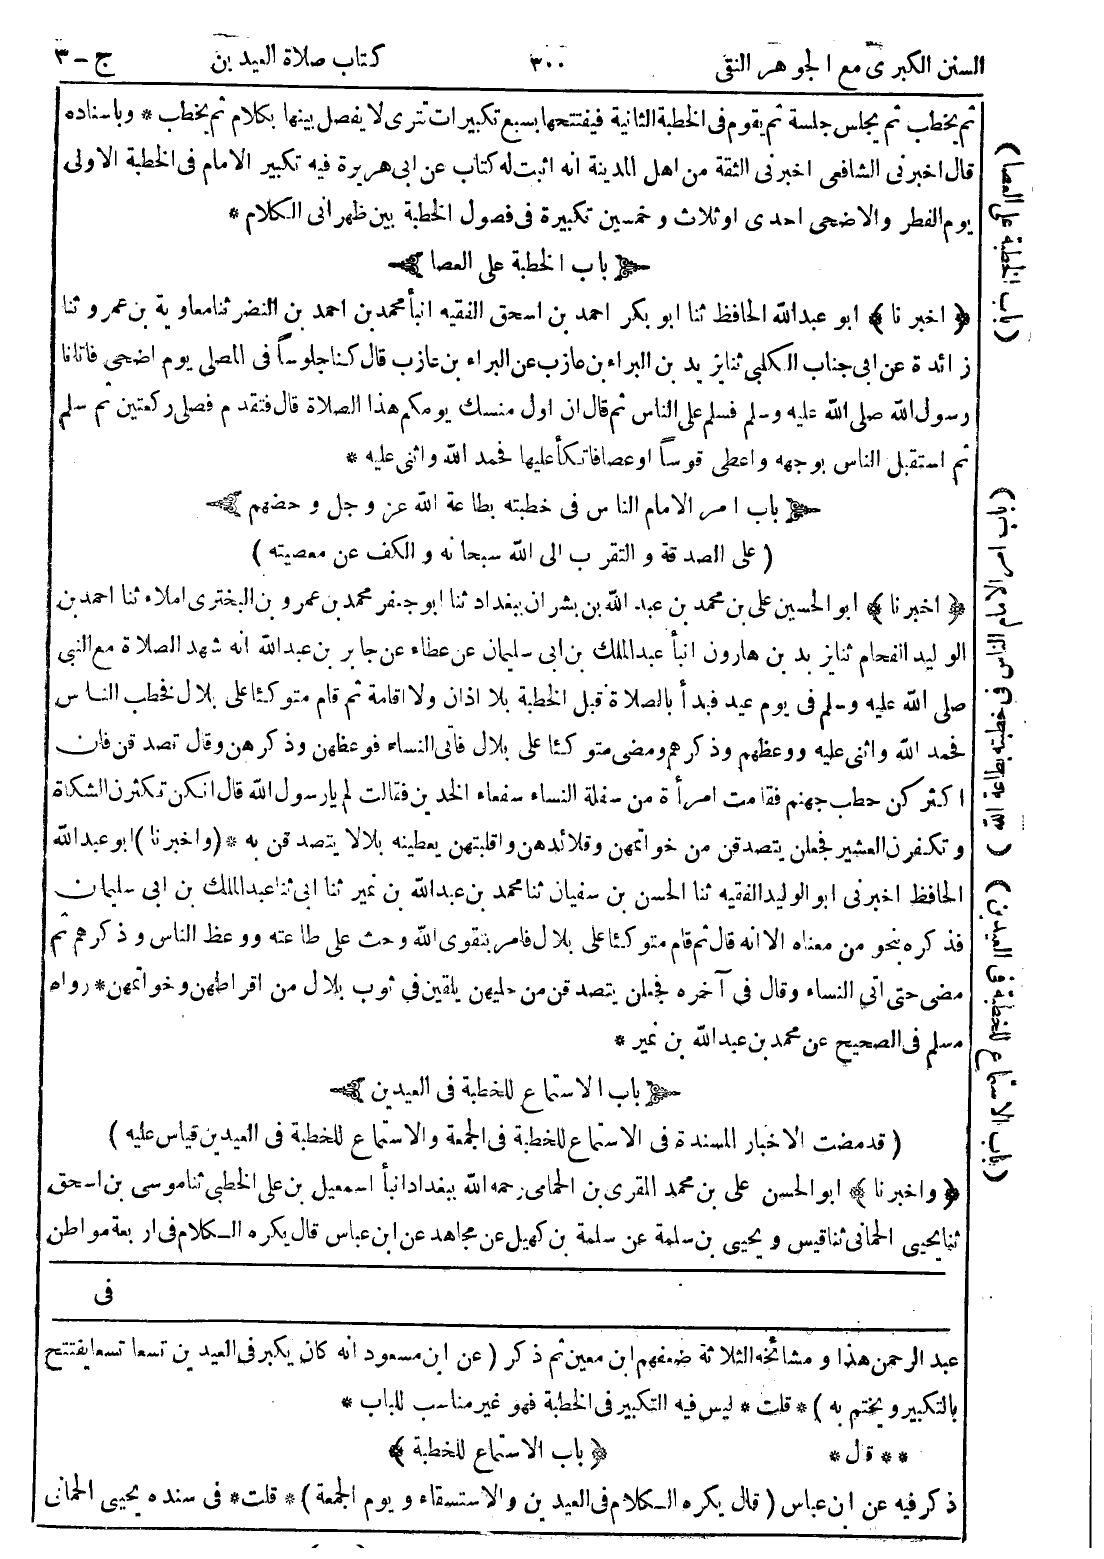 السنن الكبرى مع الجوهر النقى ٣٠٠ كتاب صلاة العيدين ج – ٣
ثم يخطب ثم يجلس جلسة ثم يقوم فى الخطبة الثانية فيفتتحها بسبع تكبيرات تترى لا يفصل بينها بكلام ثم يخطب * وباسناده
قال اخبرنى الشافعى اخبرنى الثقة من اهل المدينة انه اثبت له كتاب عن ابى هريرة فيه تكبير الامام فى الخطبة الاولى
يوم الفطر والاضحى احدى او ثلاث و خمسين تكبيرة فى فصول الخطبة بين ظهرانى الكلام *
باب الخطبة على العصا
﴿ اخبرنا ﴾ ابو عبدالله الحافظ ثنا ابو بكر احمد بن اسحق الفقيه انبأ محمد بن احمد بن النضر ثنا معاوية بن عمرو ثنا
زائدة عن ابى جناب الكلبى ثنا يزيد بن البراء بن عازب عن البراء بن عازب قال كنا جلوساً فى المصلى يوم اضحى فاتانا
رسول الله صلى الله عليه وسلم فسلم على الناس ثم قال ان اول منسك يومكم هذا الصلاة قال فتقدم فصلى ركعتين ثم سلم
ثم استقبل الناس بوجهه واعطى قوساً او عصا فاتكأ عليها فحمد الله واثنى عليه *
باب امر الامام الناس فى خطبته بطاعة الله عز و جل و حضهم
( على الصدقة و التقرب الى الله سبحانه و الكف عن معصيته )
﴿ اخبرنا ﴾ ابو الحسين على بن محمد بن عبد الله بن بشران ببغداد ثنا ابو جعفر محمد بن عمرو بن البخترى املاء ثنا احمد بن
الوليد الفحام ثنا يزيد بن هارون انبأ عبدالملك بن ابى سليمان عن عطاء عن جابر بن عبدالله انه شهد الصلاة مع النبى
صلى الله عليه وسلم فى يوم عيد فبدأ بالصلاة قبل الخطبة بلا اذان ولا اقامة ثم قام متوكئا على بلال فخطب الناس
فحمد الله واثنى عليه ووعظهم وذكرهم ومضى متوكئا على بلال فاتى النساء فوعظهن وذكرهن وقال تصدقن فان
اكثركن حطب جهنم فقامت امرأة من سفلة النساء سفعاء الخدين فقالت لم يا رسول الله قال انكن تكثرن الشكاة
وتكفرن العشير فجعلن يتصدقن من خواتمهن وقلائدهن واقلبتهن يعطينه بلالا يتصدقن به * ( واخبرنا ) ابو عبدالله
الحافظ اخبرنى ابو الوليد الفقيه ثنا الحسن بن سفيان ثنا محمد بن عبدالله بن نمير ثنا ابى ثنا عبدالملك بن ابى سليمان
فذكره بنحو من معناه الا انه قال ثم قام متوكئا على بلال فامر بتقوى الله وحث على طاعته ووعظ الناس وذكرهم ثم
مضى حتى اتى النساء وقال فى آخره فجعلن يتصدقن من حليهن يلقين في ثوب بلال من اقراطهن وخواتمهن * رواه
مسلم فى الصحيح عن محمد بن عبدالله بن نمير *
باب الاستماع للخطبة فى العيدين
( قد مضت الاخبار المسندة فى الاستماع للخطبة فى الجمعة والاستماع للخطبة فى العيدين قياس عليه )
﴿ واخبرنا ﴾ ابو الحسن على بن محمد المقرى بن الحمامى رحمه الله ببغداد انبأ اسمعيل بن على الخطبي ثنا موسى بن اسحق
ثنا يحيى الحمانى ثنا قيس و يحيى بن سلمة عن سلمة بن كهيل عن مجاهد عن ابن عباس قال يكره الكلام فى اربعة مواطن
فى
عبد الرحمن هذا و مشائخه الثلاثة ضعفهم ابن معين ثم ذكر ( عن ابن مسعود انه كان يكبر فى العيدين تسعا تسعا يفتتح
بالتكبير و يختم به ) * قلت * ليس فيه التكبير فى الخطبة فهو غير مناسب للباب *
* * قال * ﴿ باب الاستماع للخطبة ﴾
ذكر فيه عن ابن عباس ( قال يكره الكلام فى العيدين والاستسقاء و يوم الجمعة ) * قلت * فى سنده يحيى الحمانى
( باب الخطبة على العصا )
( باب الاستماع للخطبة فى العيدين )